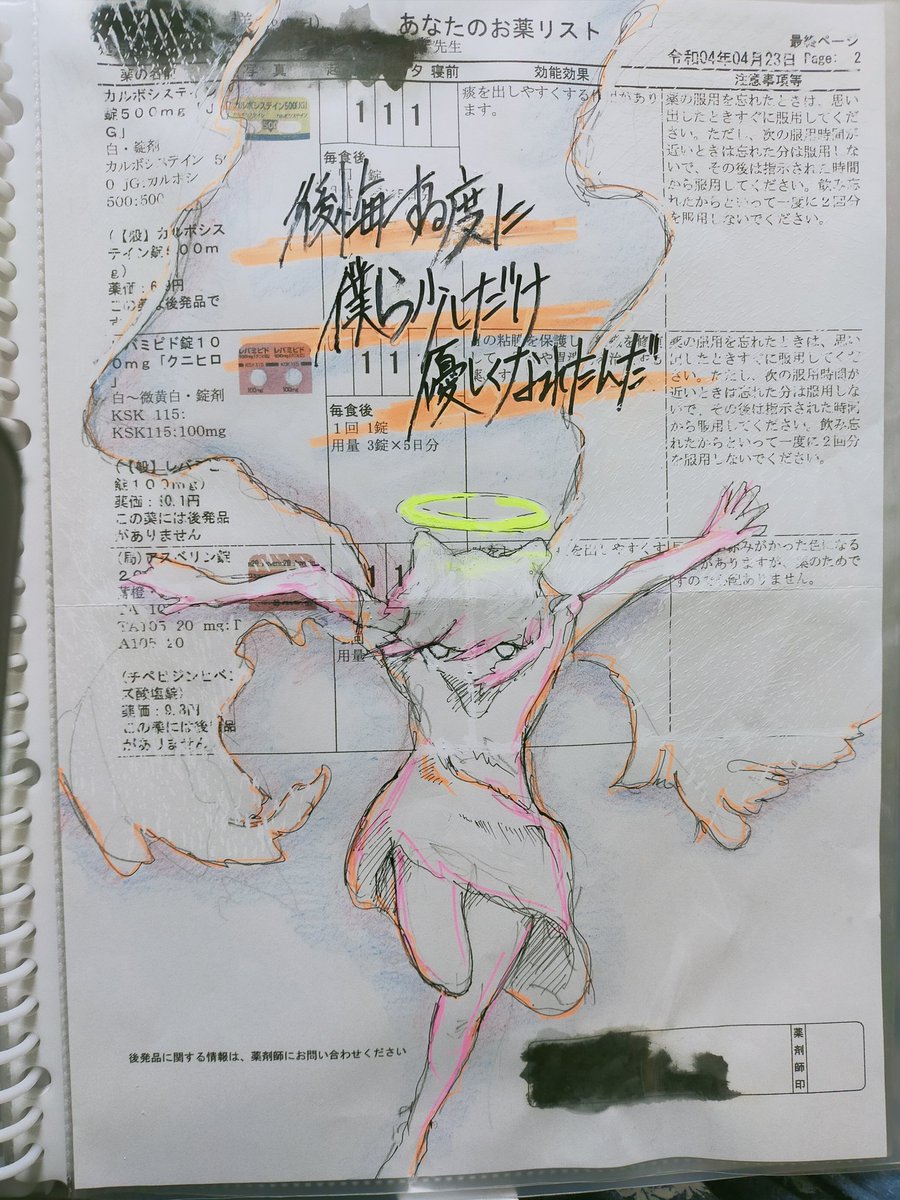 あなたのお薬リスト
先生
最終ページ
令和04年04月23日 Page: 2
寝前
効能効果
注意事項等
カルボシステイン
錠500mg「J
G」
白・錠剤
カルボシステイン 5
0 JG:カルボシ
500:500
(【般】カルボシス
テイン錠500m
g)
カルボシステイン500JG
1 1 1
毎食後
痰を出しやすくする
ます。
薬の服用を忘れたときは、思い
出したときすぐに服用してくだ
さい。ただし、次の服用時間が
近いときは忘れた分は服用しな
いで、その後は指示された時間
から服用してください。飲み忘
れたからといって一度に2回分
を服用しないでください。
後悔する度に
僕ら少しだけ
優しくなれたんだ!!
レバミピド錠10
0mg「クニヒロ
」
白~微黄白・錠剤
KSK 115:
KSK115:100mg
レバミピド レバミピド
KSK115
100mg
1 1
毎食後
1回 1錠
用量 3錠×5日分
の粘膜を保護し
薬の服用を忘れたときは、思い
出したときすぐに服用してくだ
さい。ただし、次の服用時間が
近いときは忘れた分は服用しな
いで、その後は指示された時間
から服用してください。飲み忘
れたからといって一度に2回分
を服用しないでください。
錠100mg)
薬価:10.1円
この薬には後発品
がありません
(局)アスベリン錠
1 1
を出しやすくす
赤みがかった色になる
がありますが、薬のためで
すので心配ありません。
TA105 20 mg:T
A105 20
用量
(チペピジンヒベン
ズ酸塩錠)
薬価:9.8円
この薬には後発品
がありません
後発品に関する情報は、薬剤師にお問い合わせください
薬剤師印